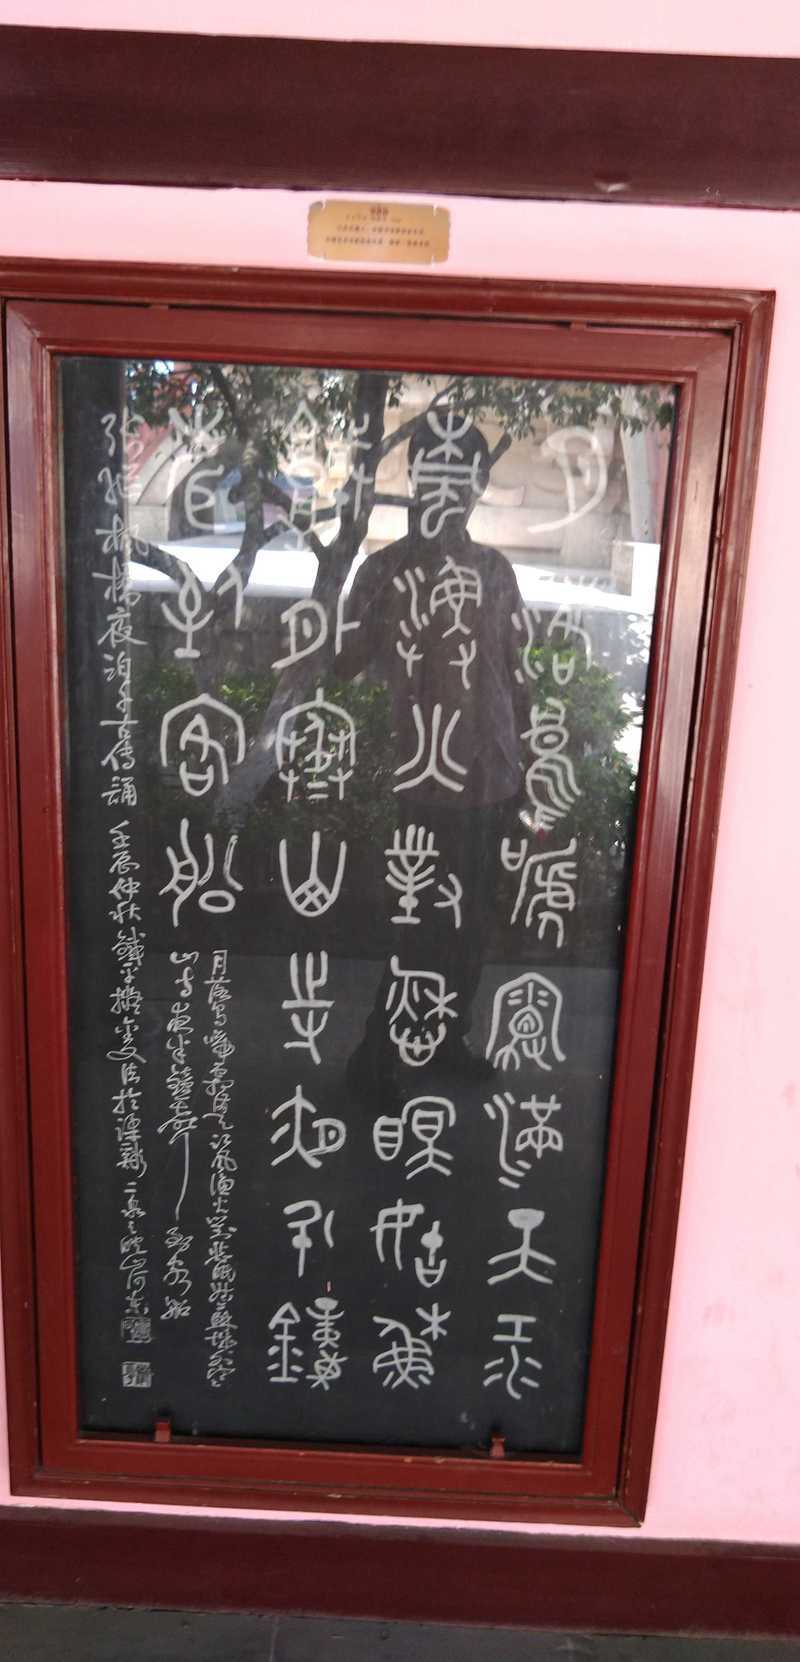 月落烏啼霜滿天江
楓漁火對愁眠姑蘇
城外寒山寺夜半鐘
聲到客船
月落烏啼霜滿天江楓漁火對愁眠姑蘇城外寒
山寺夜半鐘聲到客船
張繼楓橋夜泊千古傳誦 壬辰仲秋